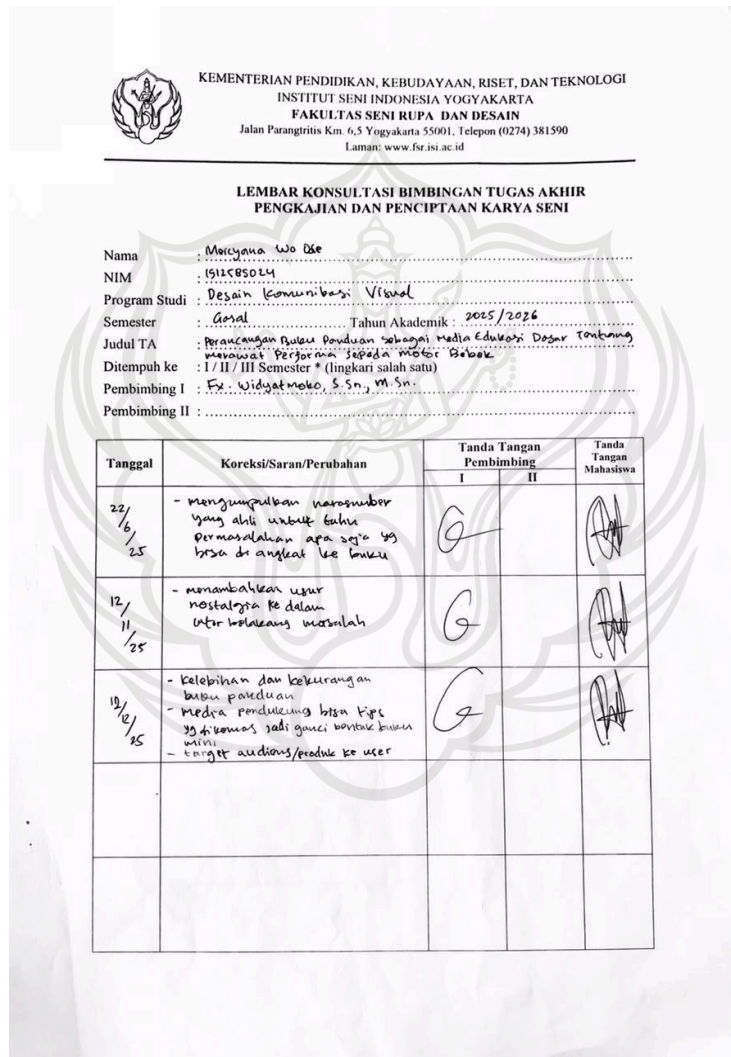 KEMENTERIAN PENDIDIKAN, KEBUDAYAAN, RISET, DAN TEKNOLOGI
INSTITUT SENI INDONESIA YOGYAKARTA
FAKULTAS SENI RUPA DAN DESAIN
Jalan Parangtritis Km. 6,5 Yogyakarta 55001, Telepon (0274) 381590
Laman: www.fsr.isi.ac.id
LEMBAR KONSULTASI BIMBINGAN TUGAS AKHIR
PENGKAJIAN DAN PENCIPTAAN KARYA SENI
Nama : Morcyana Wo
NIM : 1912585024
Program Studi : Desain Komunikasi Visual
Semester : Gasal Tahun Akademik : 2025/2026
Judul TA : Perancangan Buku Panduan sebagai Media Edukasi Dasar Tentang
merawat Performa Sepeda Motor Bebek
Ditempuh ke : I / II / III Semester * (lingkari salah satu)
Pembimbing I : Fx. Widyatmoko, S.Sn., M.Sn.
Pembimbing II :
Tanggal Koreksi/Saran/Perubahan Tanda Tangan Pembimbing Tanda Tangan Mahasiswa
I II
22/6/25 - mengumpulkan narasumber
yang ahli untuk tahu
permasalahan apa saja yg
bisa di angkat ke buku
12/11/25 - menambahkan usur
nostalgia ke dalam
latar belakang masalah
12/12/25 - kelebihan dan kekurangan
buku panduan
- media pendukung bisa tips
yg dikemas jadi ganci bentuk buku
mini
- target audiens/produk ke user